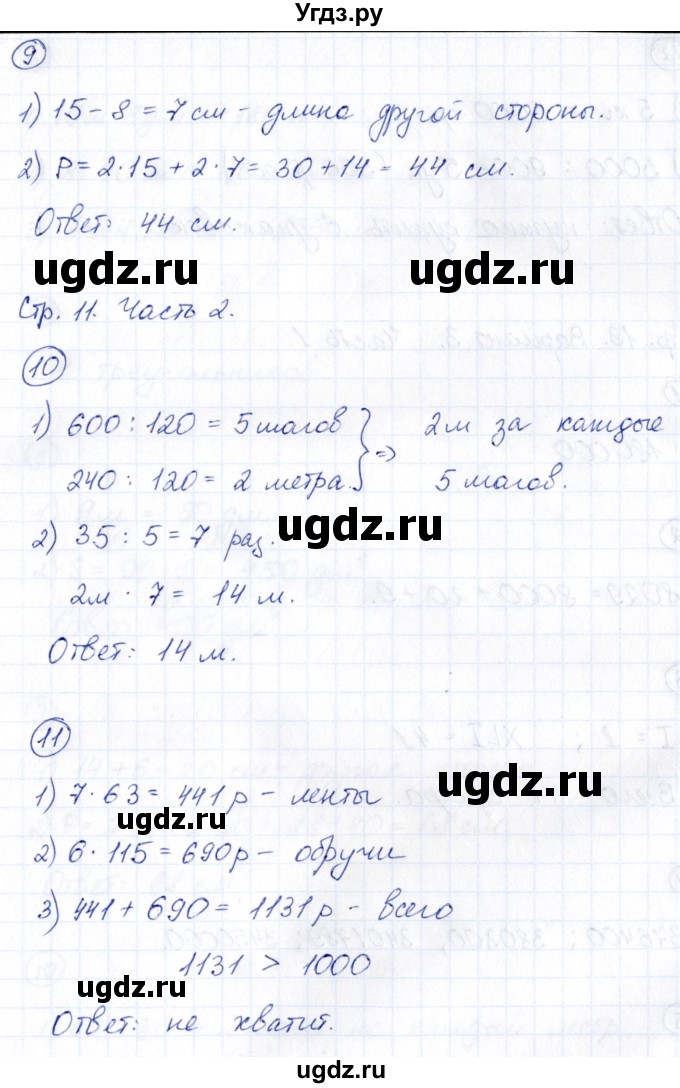 Угдз.ру
9
1) 15 - 8 = 7 см - длина другой стороны.
2) P = 2·15 + 2·7 = 30 + 14 = 44 см.
Ответ: 44 см.
ugdz.ru ugdz.ru
Стр. 11. Часть 2.
10
1) 600 : 120 = 5 шагов } => 2м за каждые
240 : 120 = 2 метра. 5 шагов.
ugdz.ru
2) 35 : 5 = 7 раз.
2м · 7 = 14 м.
Ответ: 14 м.
11
ugdz.ru
1) 7·63 = 441 р - ленты
ugdz.ru
2) 6·115 = 690 р - обручи
3) 441 + 690 = 1131 р - всего
1131 > 1000
ugdz.ru
Ответ: не хватит.
ugdz.ru